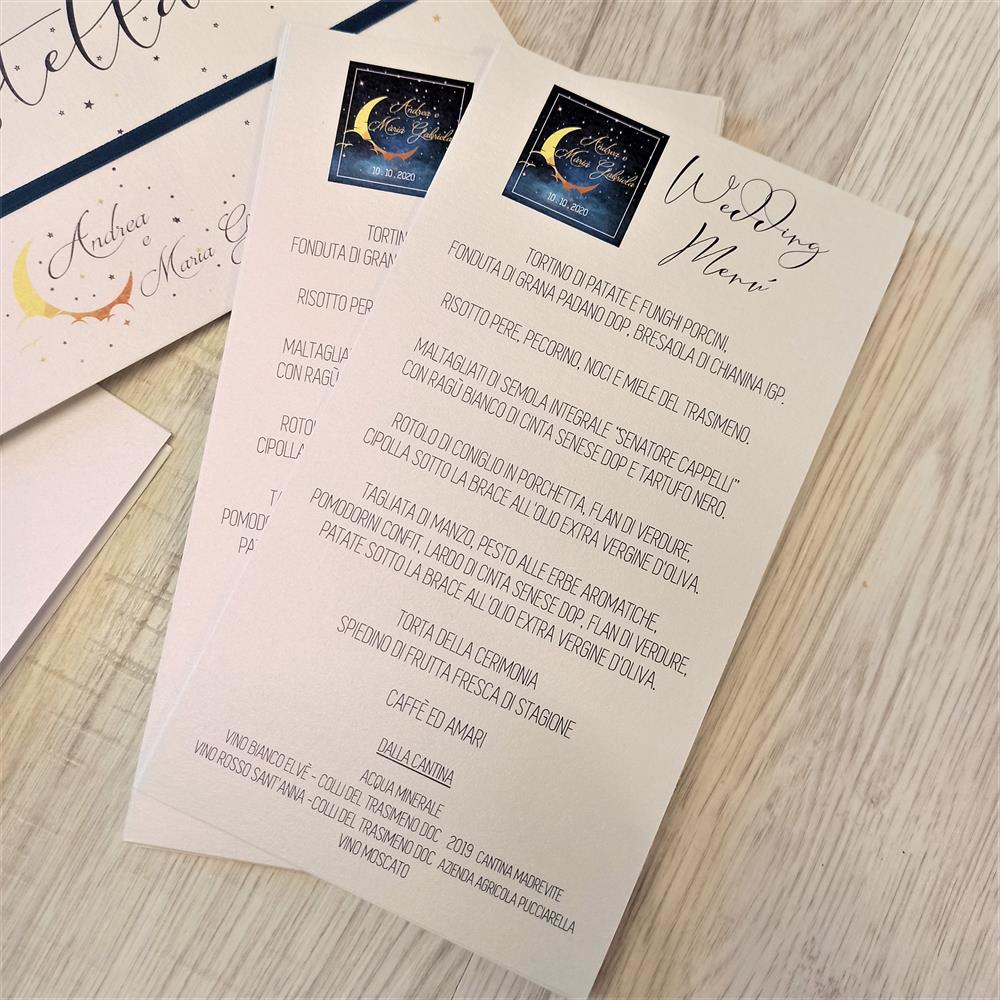 Andrea
e
Maria
Andrea e
Maria Gabriela
10.10.2020
TORTIN
FONDUTA DI GRANA
RISOTTO PER
MALTAGLIAT
CON RAGÙ
ROTO
CIPOLLA
TA
POMOD
PA
Andrea e
Maria Gabriela
10.10.2020
Wedding
Menú
TORTINO DI PATATE E FUNGHI PORCINI,
FONDUTA DI GRANA PADANO DOP, BRESAOLA DI CHIANINA IGP.
RISOTTO PERE, PECORINO, NOCI E MIELE DEL TRASIMENO.
MALTAGLIATI DI SEMOLA INTEGRALE "SENATORE CAPPELLI"
CON RAGÙ BIANCO DI CINTA SENESE DOP E TARTUFO NERO.
ROTOLO DI CONIGLIO IN PORCHETTA, FLAN DI VERDURE,
CIPOLLA SOTTO LA BRACE ALL'OLIO EXTRA VERGINE D'OLIVA.
TAGLIATA DI MANZO, PESTO ALLE ERBE AROMATICHE,
POMODORINI CONFIT, LARDO DI CINTA SENESE DOP, FLAN DI VERDURE,
PATATE SOTTO LA BRACE ALL'OLIO EXTRA VERGINE D'OLIVA.
TORTA DELLA CERIMONIA
SPIEDINO DI FRUTTA FRESCA DI STAGIONE
CAFFÈ ED AMARI
DALLA CANTINA
ACQUA MINERALE
VINO BIANCO ELVÈ - COLLI DEL TRASIMENO DOC 2019 CANTINA MADREVITE
VINO ROSSO SANT'ANNA -COLLI DEL TRASIMENO DOC AZIENDA AGRICOLA PUCCIARELLA
VINO MOSCATO